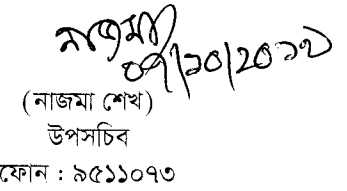 নাজমা
০৭/১০/২০১৭
(নাজমা শেখ)
উপসচিব
ফোন : ৯৫১১০৭৩